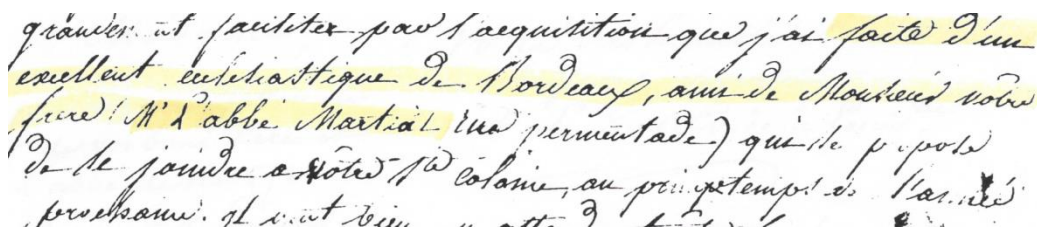 grandement faciliter par l'acquisition que j'ai faite d'un
excellent eclesiastique de Bordeaux, ami de Monsieur votre
frere (Mr L'abbé Martial rue permentade) qui se propose
de se joindre a nôtre Ste Colonie, au printemps de l'année
prochaine. Il veut bien